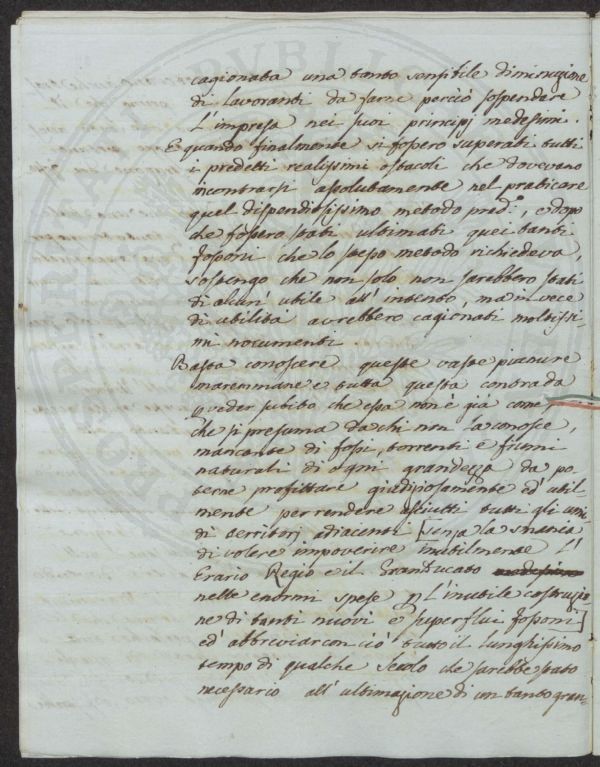 cagionata una tanto sensibile diminuzione
di lavoranti da farne perciò sospendere
l'impresa nei suoi principj medesimi.
E quando finalmente si fossero superati tutti
i predetti realissimi ostacoli che dovevano
incontrarsi assolutamente nel praticare
quel dispendiosissimo metodo pred.º, e dopo
che fossero stati ultimati quei tanti
fossoni che lo stesso metodo richiedeva,
sostengo che non solo non sarebbero stati
di alcun' utile all' intento, ma in vece
di utilità avrebbero cagionati moltissi-
mi nocumenti
Basta conoscere queste vaste pianure
maremmane e tutta questa contrada
p veder subito che essa non è già come
che si presuma da chi non la conosce,
mancante di fossi, torrenti e fiumi
naturali di ogni grandezza da po-
terne profittare giudiziosamente ed util
mente per rendere asciutti tutti gli umi
di territorj adiacenti [senza la smania
di volere impoverire inutilmente l'
Erario Regio e il GranDucato medesimo
nelle enormi spese p l'inutile costruzio
ne di tanti nuovi e superflui fossoni]
ed' abbreviar con ciò tutto il lunghissimo
tempo di qualche secolo che sarebbe stato
necessario all' ultimazione di un tanto gran=
PVBLIC